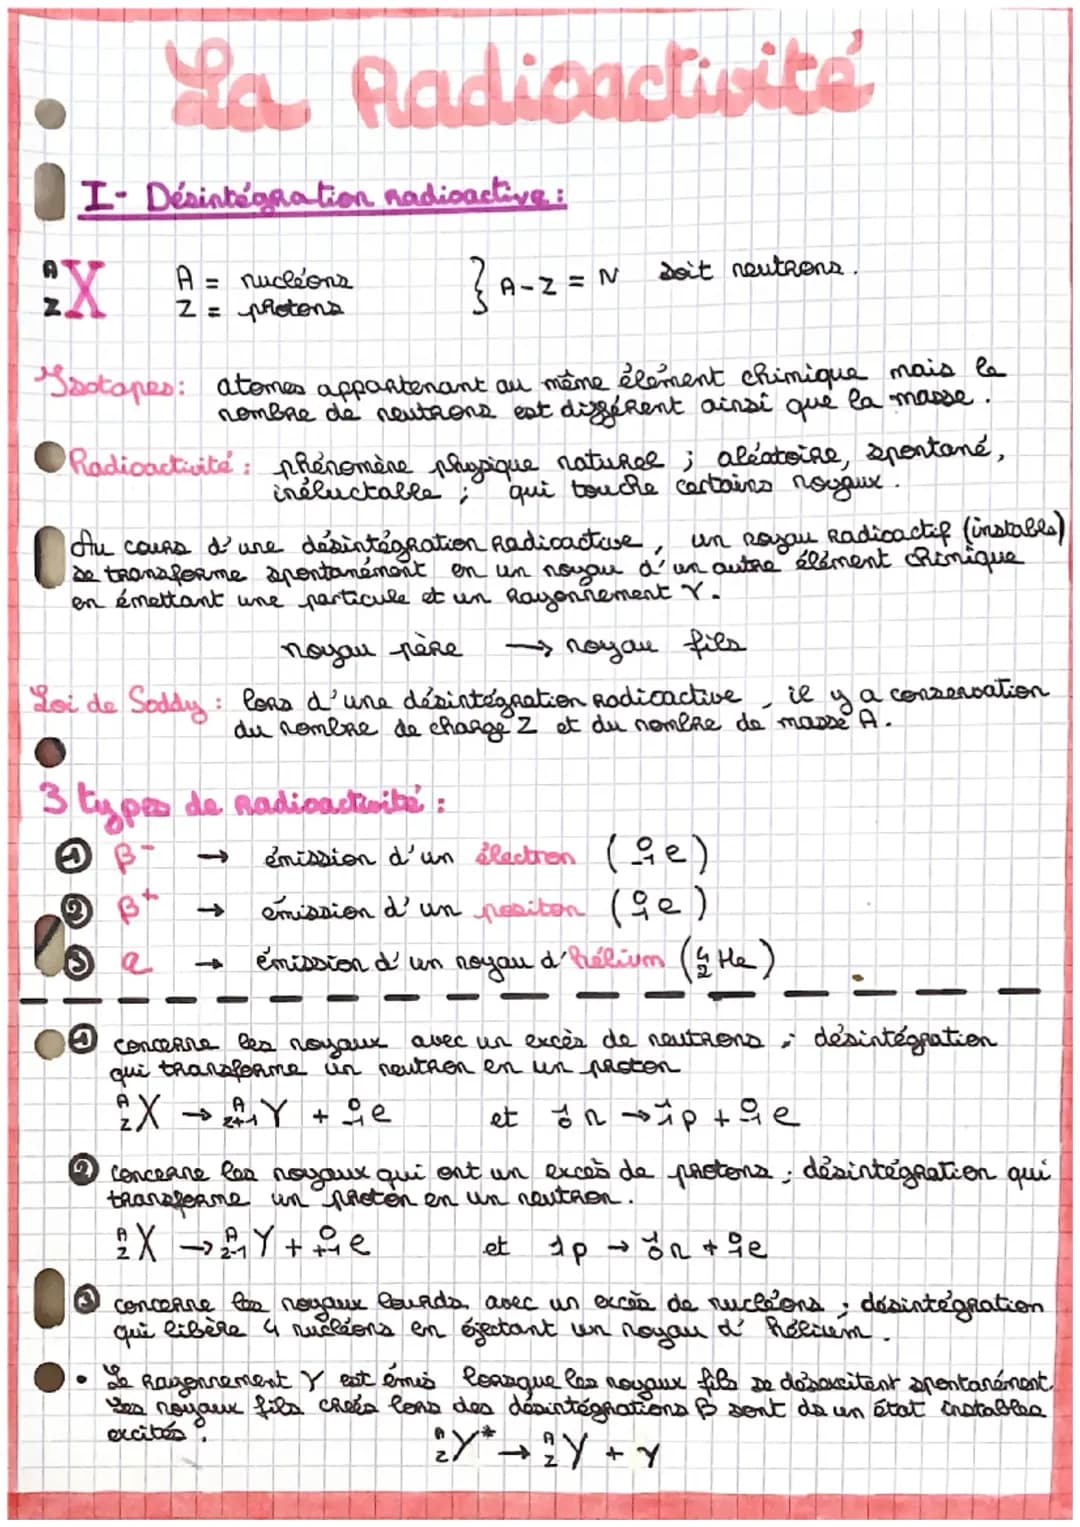 La Radioactivité
I- Désintégration radioactive :
A
Z X A = nucléons } A-Z = N soit neutrons.
Z = protons
Isotopes : atomes appartenant au même élément chimique mais le
nombre de neutrons est différent ainsi que la masse.
Radioactivité : phénomène physique naturel ; aléatoire, spontané,
inéluctable ; qui touche certains noyaux.
Au cours d'une désintégration radioactive, un noyau radioactif (instable)
se transforme spontanément en un noyau d'un autre élément chimique
en émettant une particule et un rayonnement γ.
noyau père → noyau fils
Loi de Soddy : lors d'une désintégration radioactive, il y a conservation
du nombre de charge Z et du nombre de masse A.
3 types de radioactivité :
① β⁻ → émission d'un électron (⁰₋₁e)
② β⁺ → émission d'un positon (⁰₁e)
③ α → émission d'un noyau d'hélium (⁴₂He)
① concerne les noyaux avec un excès de neutrons ; désintégration
qui transforme un neutron en un proton
ᴬ_Z X → ᴬ_Z+1 Y + ⁰₋₁e et ¹₀n → ¹₁p + ⁰₋₁e
② concerne les noyaux qui ont un excès de protons ; désintégration qui
transforme un proton en un neutron.
ᴬ_Z X → ᴬ_Z-1 Y + ⁰₊₁e et 1p → ¹₀n + ⁰₁e
③ concerne les noyaux lourds avec un excès de nucléons ; désintégration
qui libère 4 nucléons en éjectant un noyau d'hélium.
• Le rayonnement γ est émis lorsque les noyaux fils se désexcitent spontanément.
Les noyaux fils créés lors des désintégrations β sont ds un état instables
excités.
ᴬ_Z Y* → ᴬ_Z Y + γ